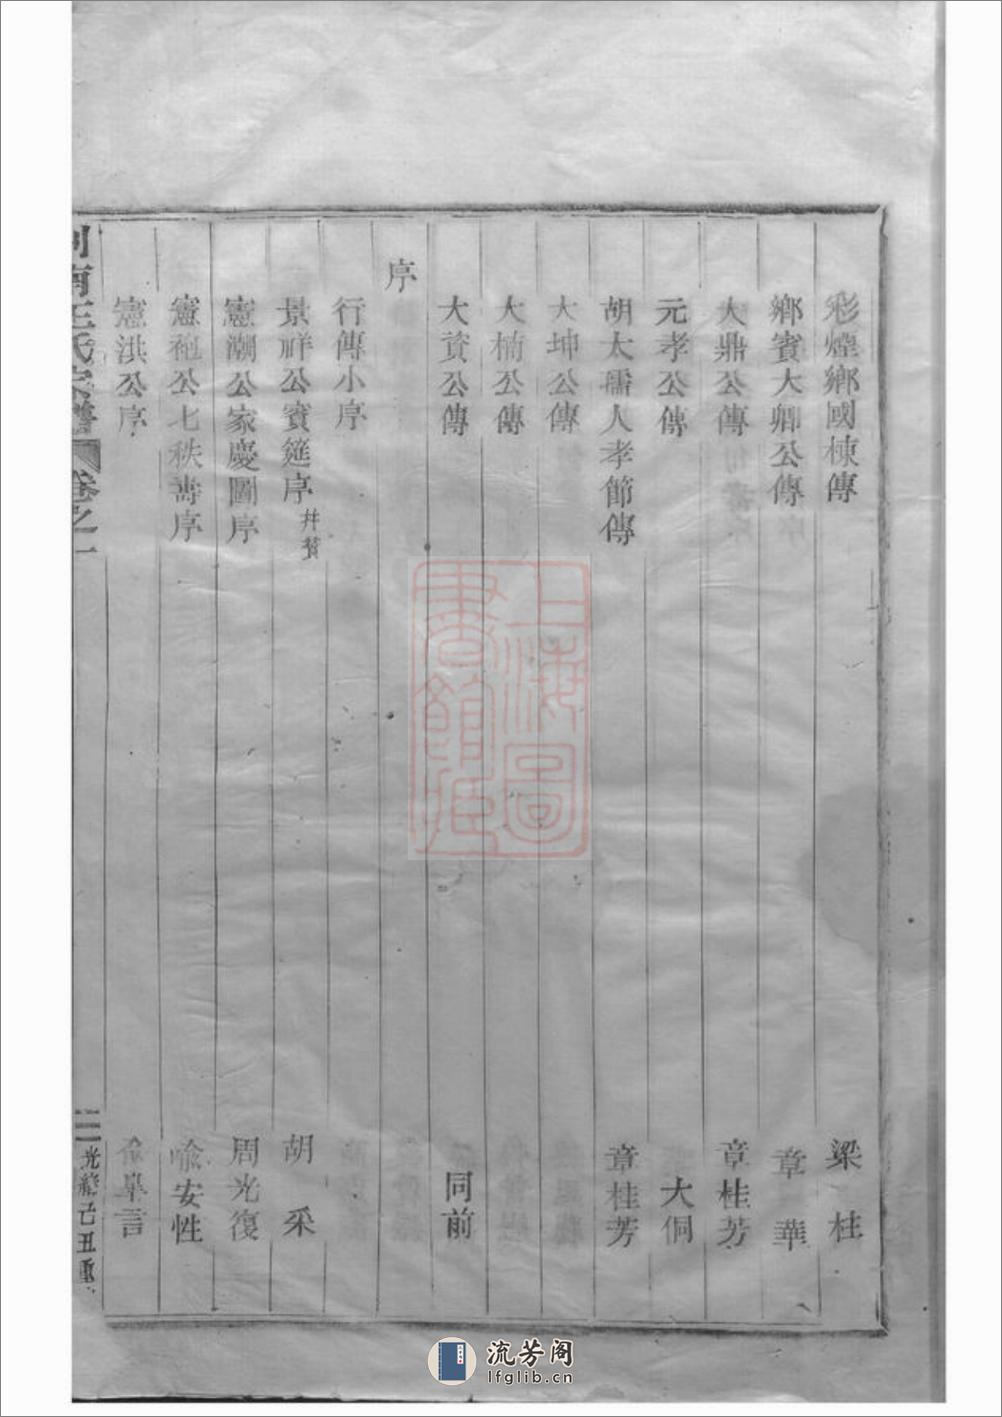 彩煙鄉國棟傳 梁桂
鄉賓大卿公傳 章華
大鼎公傳 章桂芳
元孝公傳 大侗
胡太孺人孝節傳 章桂芳
大坤公傳
大楠公傳
大資公傳 同前
序
行傳小序
景祥公賓筵序 并贊 胡采
憲潮公家慶圖序 周光復
憲袍公七秩壽序 喻安性
憲洪公序 俞皐言
南王氏宗譜 卷之一 三 光緒己丑重
上海圖書館藏
流芳阁
lfglib.cn